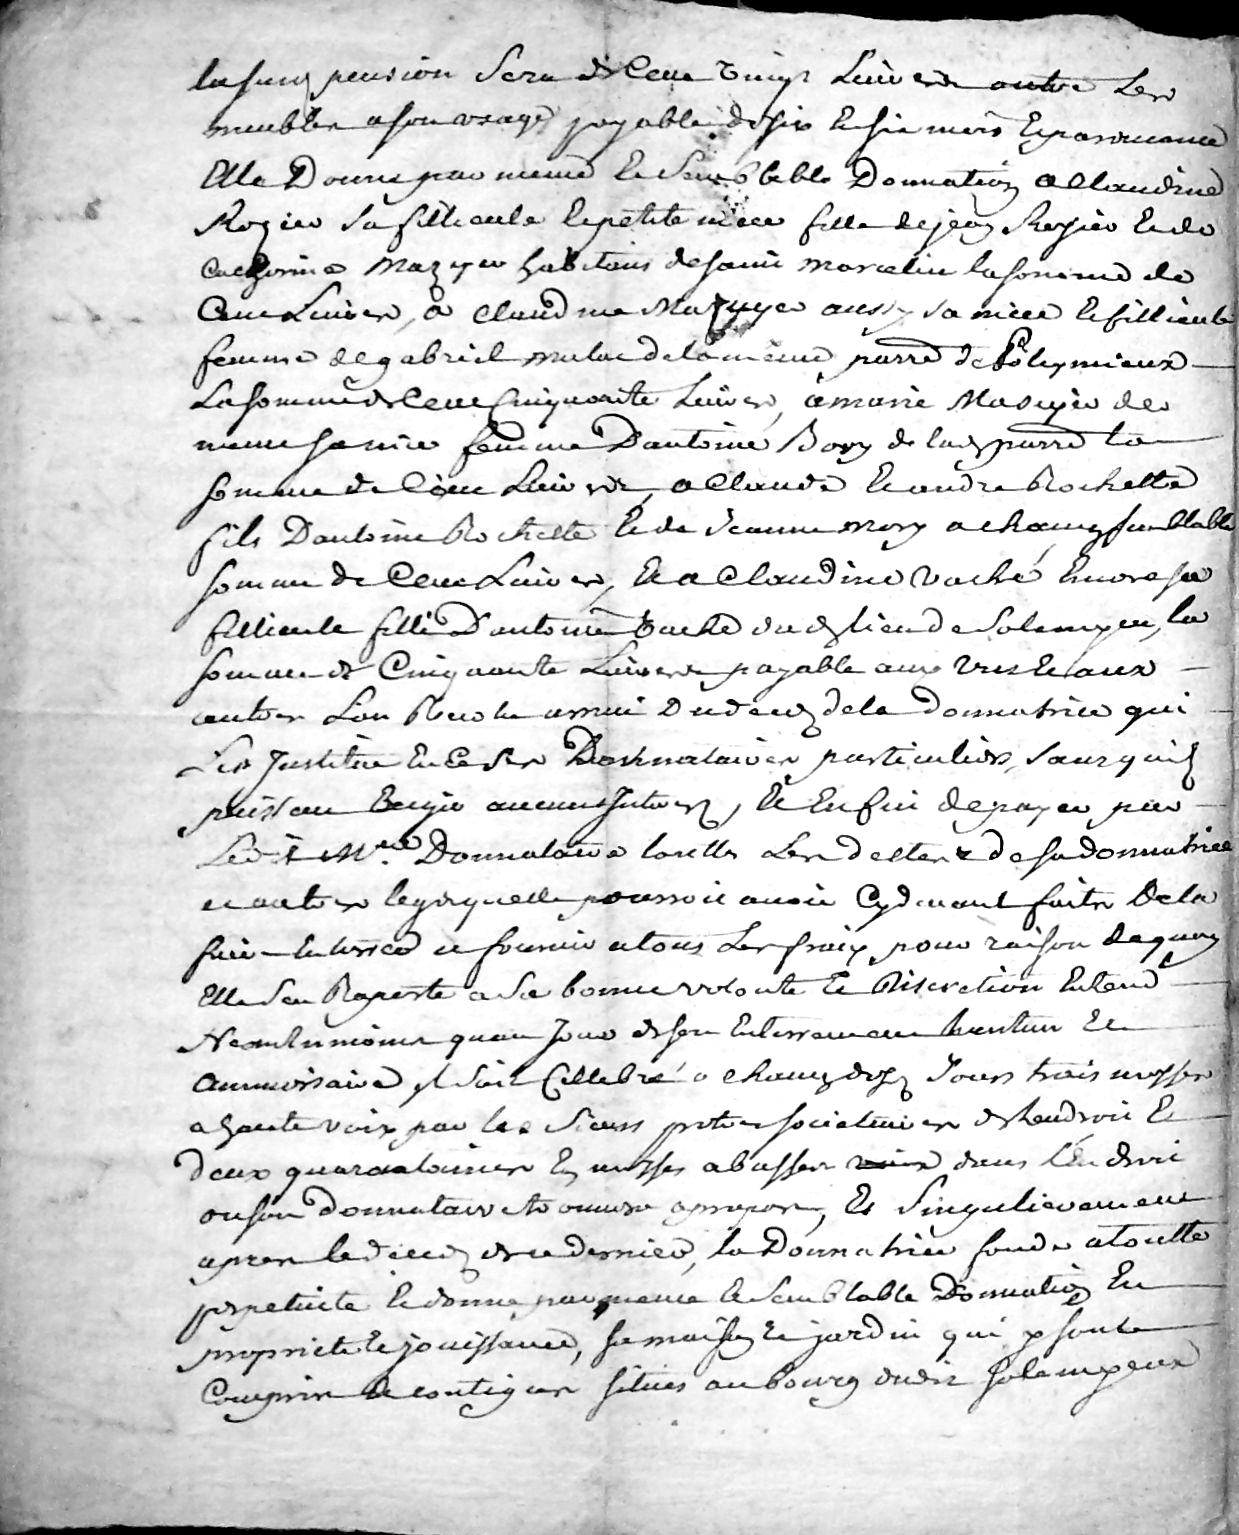 lasusd pension sera de Cent vingt Livres outre les
meubles a son usage payable de six en six mois Et par avance
Elle Donne par meme Et Semblable Donnation a Claudine
Rozier sa fillieule Et petite niece fille de jean Rozier Et de
Catherine Mazuyer habitans de saint marcelin la somme de
Cent Livres, a Claudine Mazuyer aussy sa niece Et fillieule
femme de gabriel mulac de la même parre de Poleymieux
La somme de Cent Cinquante Livres, a marie Masuyer de
meme sa niece femme D'antoine Bory de lad parre la
somme de Cent Livres, a Claude Et andre Rochette
fils D'antoine Rochette Et de Jeanne mory a chacun semblable
somme de Cent Livres, Et a Claudine vaché Encore sa
fillieule fille D'antoine vaché dud lieu de Solempeu, la
somme de Cinquante Livres payable aux uns Et aux
autres L'an Revolu apres du deces de la donnatrice qui
Les Institue En Ce Ses Donnataires particuliers, sans quils
puissent Exiger aucuns Interets, Et Enfin de payer par
Led S. Mre Donnataire toutes Les dettes de sa donnatrice
et autres legs quelle pourroit avoir Cydevant faits De la
faire Enterrer et fournir a tous Les fraix pour raison de quoy
Elle s'en Raporte a sa bonne volonté Et Discretion Entend
Neantmoins quau Jour de son Enterrement huitain Et
anniversaire il soit Cellebré a chacun desd Jours trois messes
a haute voix par les Sieurs pretres societaires de Lendroit Et
deux quarantaines En messes a basses voix dans L'Endroit
ou son Donnataire trouvera apropos, Et Singulierement
apres le deces de ce dernier, la Donnatrice fonde a toutte
perpetuité Et donne par meme Et Semblable Donnation En
proprieté Et jouissance, sa maison Et jardin qui y sont
Compris Et contigues situés au bourg dudit Solempeux